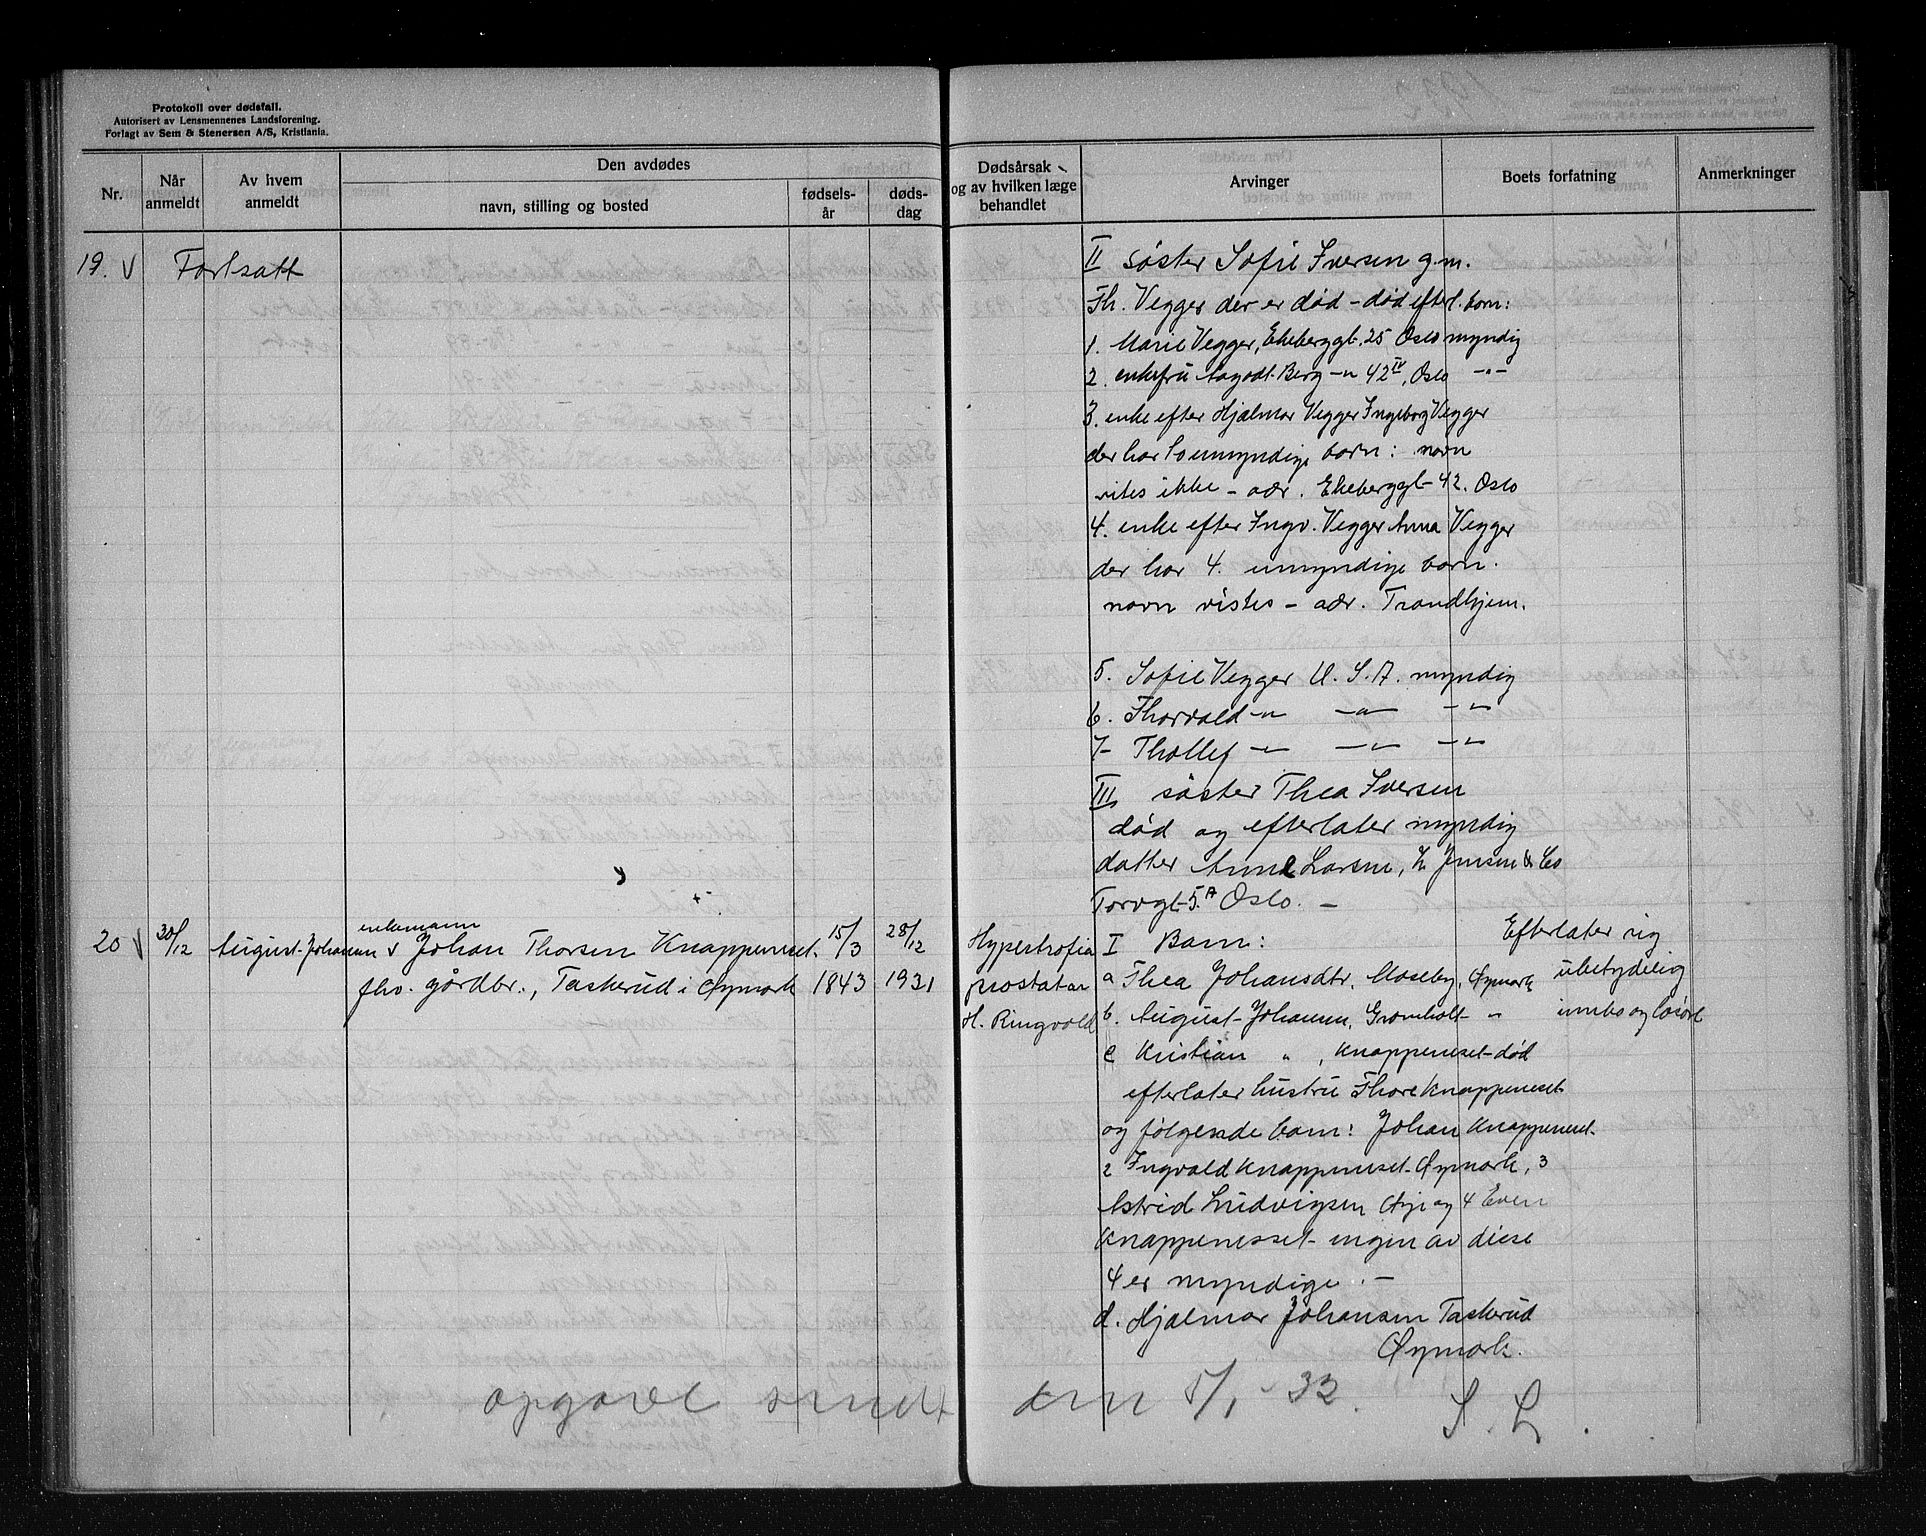 Protokoll over dødsfall.
Autorisert av Lensmennenes Landsforening.
Forlagt av Sem & Stenersen A/S, Kristiania.
Nr.
Når anmeldt
Av hvem anmeldt
Den avdødes
navn, stilling og bosted
fødsels-år
døds-dag
Dødsårsak og av hvilken læge behandlet
Arvinger
Boets forfatning
Anmerkninger
19. Fortsatt
II søster Sofie Iversen g.m.
Th. Vegger der er død - død efterl. barn:
1. Marie Vegger, Ekeberggt. 25 Oslo myndig
2. enkefru Aagodt Berg -"- 42 IV, Oslo -"-
3. enke efter Hjalmar Vegger Ingeborg Vegger
der har umyndige barn: navn
vites ikke - adr. Ekeberggt 42. Oslo
4. enke efter Ingv. Vegger Anna Vegger
der har 4. umyndige barn.
navn vistes - adr. Trondhjem.
5. Sofie Vegger U. S. A. myndig
6. Thorvald -"- -"- -"-
7- Thollef -"- -"- -"-
III søster Thea Iversen
død og efterlater myndig
datter Anne Larsen, Jensen & Co
Torvgt 5A Oslo. -
20 30/12 August Johansen
enkemann
Johan Thorsen Knappeneset 15/3 28/12
fhv. gårdbr., Taskerud i Øymark 1843 1931
Hypertrofia
prostatae
H. Ringvold
I Barn:
a Thea Johansdtr. Moseby, Øymark
b. August Johansen, Gromholt "
c Kristian " , Knappeneset død
efterlater hustru Thore Knappeneset
og følgende barn: Johan Knappeneset
2 Ingvald Knappeneset Øymark, 3
Astrid Ludvigsen og 4 Even
Knappenesset ingen av disse
4 er myndige. -
d. Hjalmar Johansen Taskerud
Øymark.
Efterlater sig
ubetydelig
innbo og løsøre
opgave sendt den 5/1 - 32. S. L.